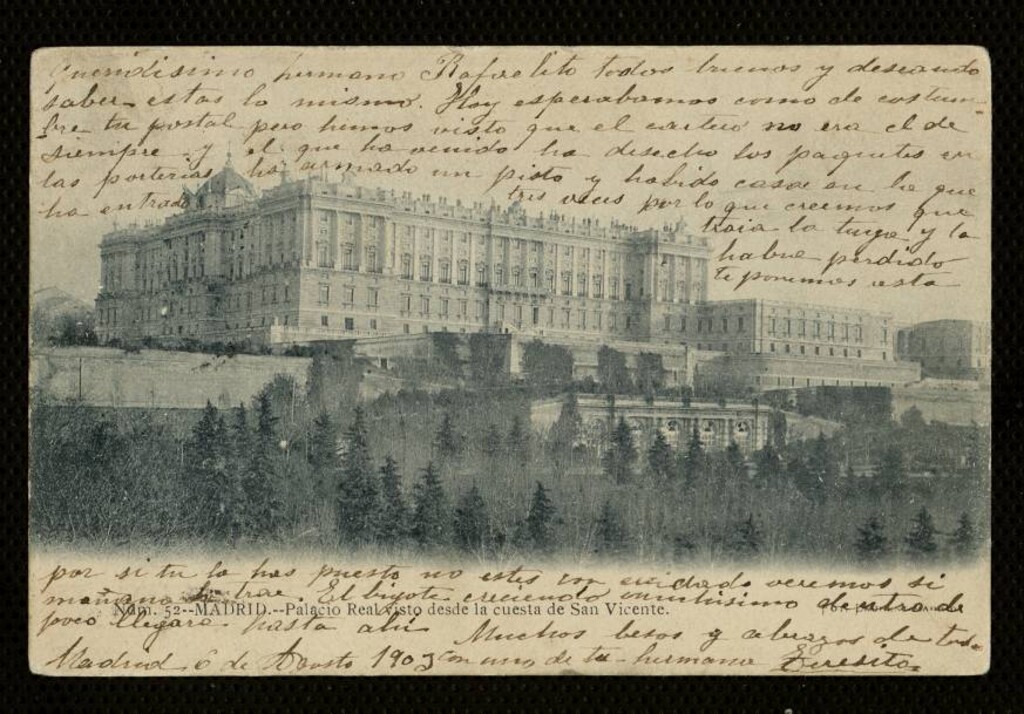 Queridisimo hermano Rafaelito todos buenos y deseando
saber estas lo mismo. Hoy esperabamos como de costum-
bre tu postal pero hemos visto que el cartero no era el de
siempre y el que ha venido ha desecho los paquetes en
las porterias, ha armado un pisto y habido casa en la que
ha entrado tres veces por lo que creemos que
traia la tuya y la
habra perdido
te ponemos esta
por si tu la has puesto no estes con cuidado veremos si
mañana la trae. El bigote creciendo muchisimo dentro de
Núm. 52--MADRID.--Palacio Real visto desde la cuesta de San Vicente.
poco llegara hasta ahi Muchos besos y abrazos de todos
Madrid 6 de Agosto 1903 con uno de tu hermana Teresita